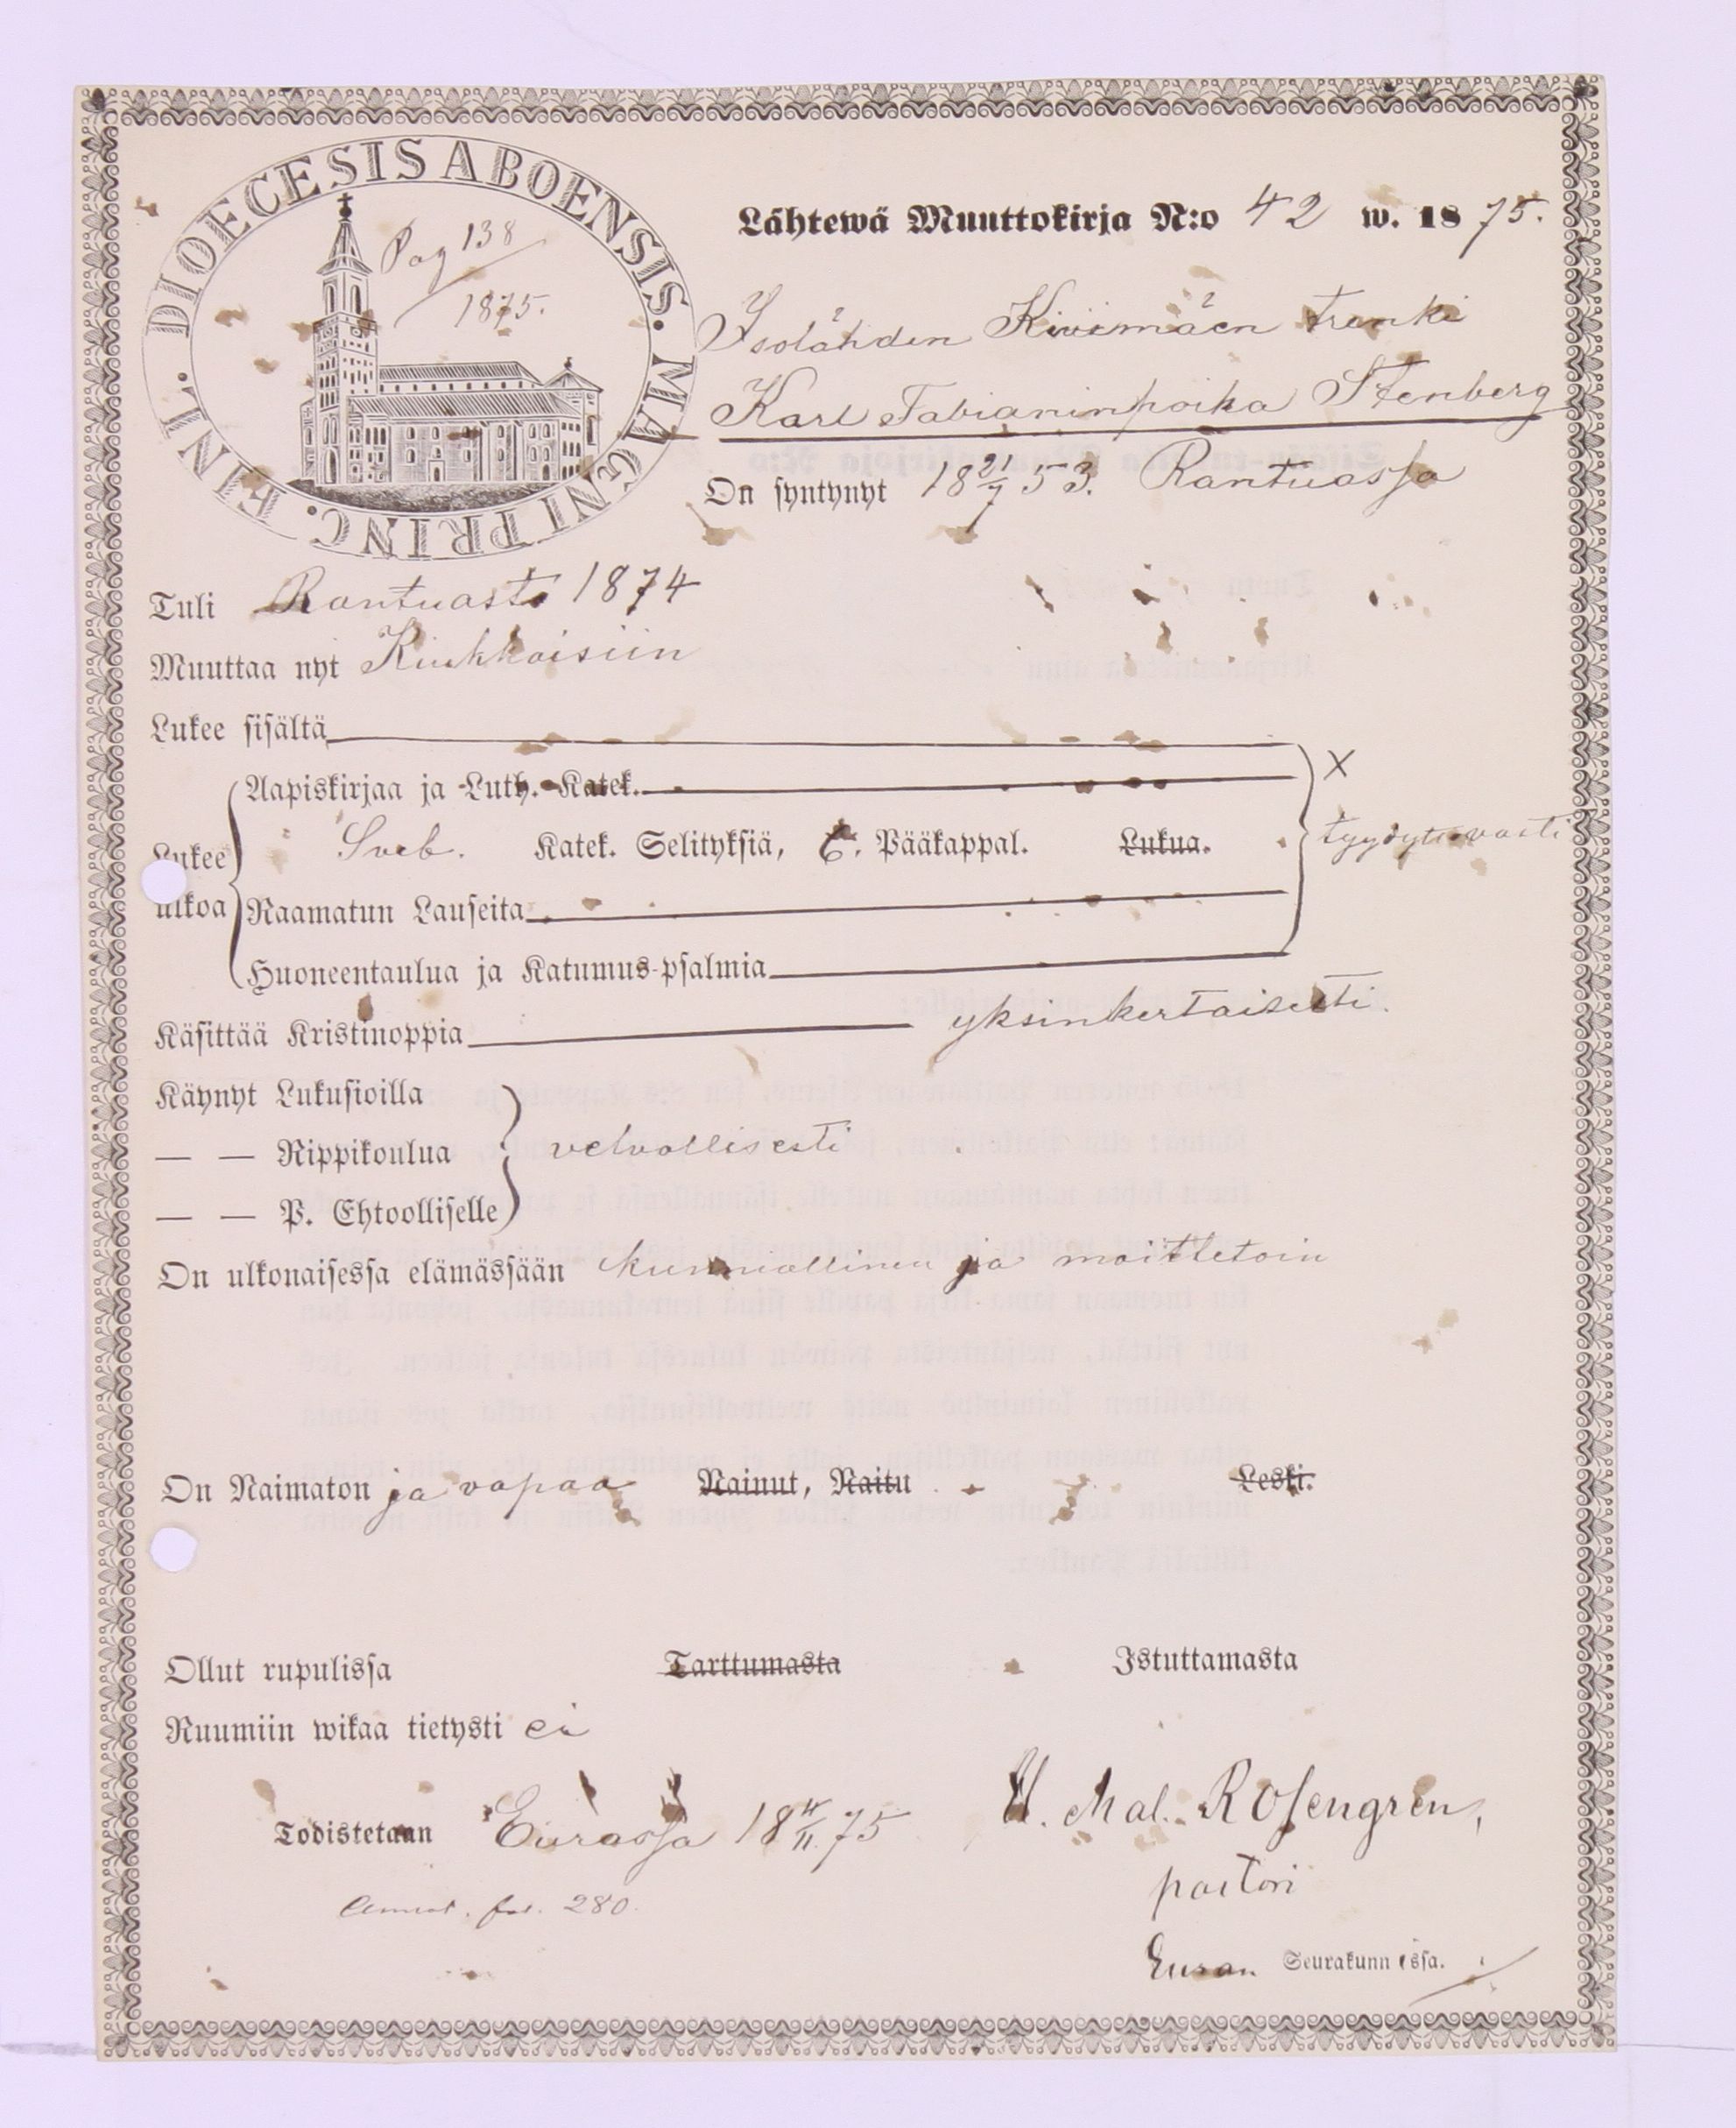 DIOECESIS ABOENSIS. MAGNI PRINC. FINL.
Pag 138
1875.
Lähtewä Muuttokirja N:o 42 w. 1875.
Isolähden Kivimäen trenki
Karl Fabianinpoika Stenberg
On syntynyt 18 21/7 53. Kantuassa
Tuli Kantuasta 1874
Muuttaa nyt Kiukkaisiin
Lukee sisältä
Aapiskirjaa ja Luth. Katek.
X
Lukee ulkoa
Sveb. Katek. Selityksiä, 6. Pääkappal. Lukua.
tyydyttävästi
Raamatun Lauseita
Huoneentaulua ja Katumus-psalmia
Käsittää Kristinoppia yksinkertaisesti.
Käynyt Lukusioilla
— — Rippikoulua velvollisesti
— — P. Ehtoolliselle
On ulkonaisessa elämässään kunniallinen ja moittetoin
On Naimaton ja vapaa Nainut, Naitu Leski.
Ollut rupulissa Tarttumasta Istuttamasta
Ruumiin wikaa tietysti ei
Todistetaan Eurassa 18 4/11 75
Mal. Rosengren,
pastori
Annot. fol. 280.
Euran Seurakunnissa.